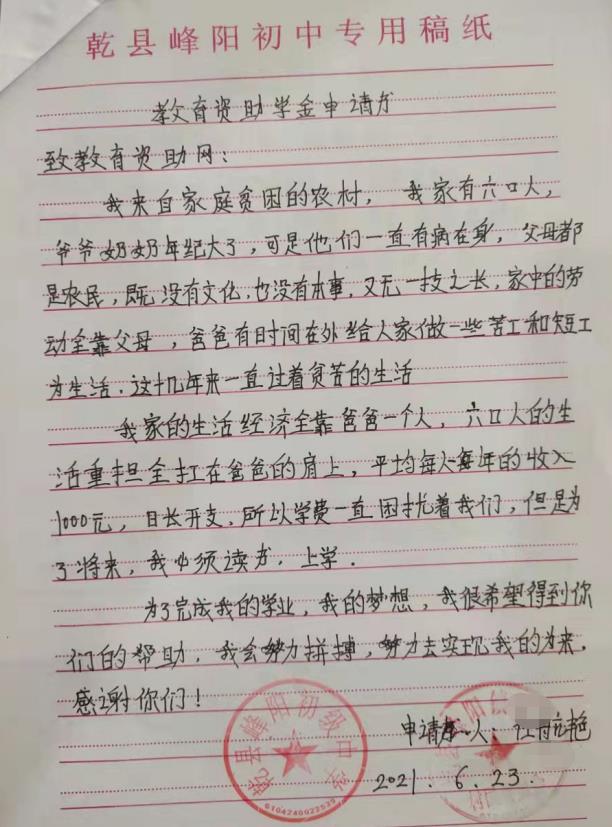 乾县峰阳初中专用稿纸
教育资助学金申请书
致教育资助网：
我来自家庭贫困的农村，我家有六口人，
爷爷奶奶年纪大了，可是他们一直有病在身，父母都
是农民，既没有文化，也没有本事，又无一技之长，家中的劳
动全靠父母，爸爸有日时间在外给人家做一些苦工和短工
为生活．这十几年来一直过着贫苦的生活
我家的生活经济全靠爸爸一个人，六口人的生
活重担全扛在爸爸的肩上，平均每人每年的收入
1000元，日长开支，所以学费一直困扰着我们，但是为
了将来，我必须读书，上学．
为了完成我的学业，我的梦想，我很希望得到你
们的帮助，我会努力拼搏，努力去实现我的为来，
感谢你们！
乾县峰阳初级中学
6104240022539
申请 人：
2021．6．23．